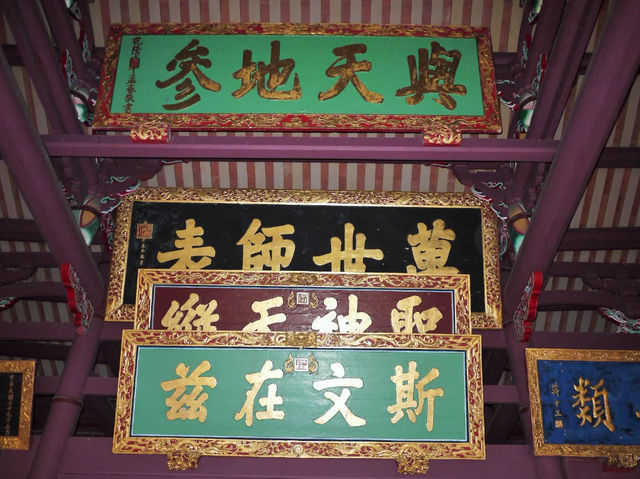 與天地參
萬世師表
聖神天縱
斯文在茲
類